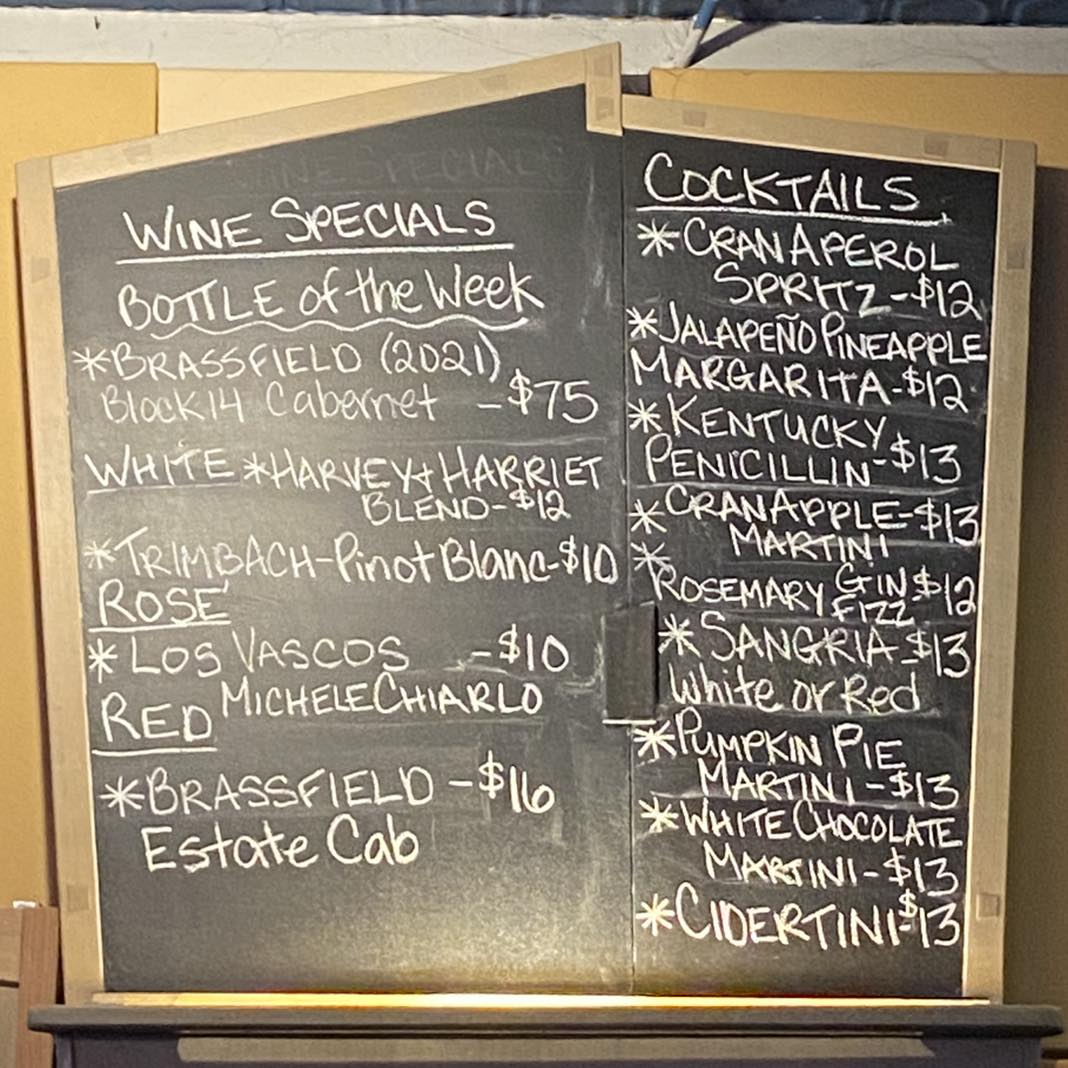 WINE SPECIALS
WINE SPECIALS
BOTTLE of the Week
*BRASSFIELD (2021)
Block 14 Cabernet - $75
WHITE *HARVEY + HARRIET
BLEND - $12
*TRIMBACH - Pinot Blanc - $10
ROSÉ
*LOS VASCOS - $10
RED MICHELE CHIARLO
*BRASSFIELD - $16
Estate Cab
COCKTAILS
*CRAN APEROL
SPRITZ - $12
*JALAPEÑO PINEAPPLE
MARGARITA - $12
*KENTUCKY
PENICILLIN - $13
*CRANAPPLE - $13
MARTINI
*
ROSEMARY GIN FIZZ $12
*SANGRIA - $13
White or Red
*PUMPKIN PIE
MARTINI - $13
*WHITE CHOCOLATE
MARTINI - $13
*CIDERTINI - $13